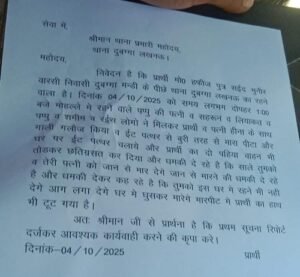 सेवा में,
श्रीमान थाना प्रभारी महोदय,
थाना दुबग्गा लखनऊ।
महोदय,
निवेदन है कि प्रार्थी मो0 हफीज पुत्र सईद मुनीर
वारसी निवासी दुबग्गा मन्डी के पीछे थाना दुबग्गा लखनऊ का रहने
वाला है। दिनांक 04/10/2025 को समय लगभग दोपहर 1:00
बजे मोहल्ले में रहने वाले पप्पू की पत्नी व सहरून व लियाकत व
पप्पू व शमीम व रईस लोगो ने मिलकर प्रार्थी व पत्नी हीना के साथ
गाली गलौज किया व ईट पत्थर से बुरी तरह से मारा पीटा और
घर पर ईट पत्थर चलाये और प्रार्थी का दो पहिया वाहन भी
तोडकर छतिग्रसत कर दिया और धमकी दे रहे है कि साले तुमको
व तेरी पत्नी को जान से मार देगे जान से मारने की धमकी दे रहे
है और धमकी देकर कह रहे है कि तुमको इस घर मे रहने भी नही
देगे आग लगा देगे घर मे घुसकर मारेगे मारपीट में प्रार्थी का हाथ
भी टूट गया है।
अतः श्रीमान जी से प्रार्थना है कि प्रथम सूचना रिपोर्ट
दर्जकर आवश्यक कार्यवाही करने की कृपा करे।
दिनांक-04/10/2025 प्रार्थी